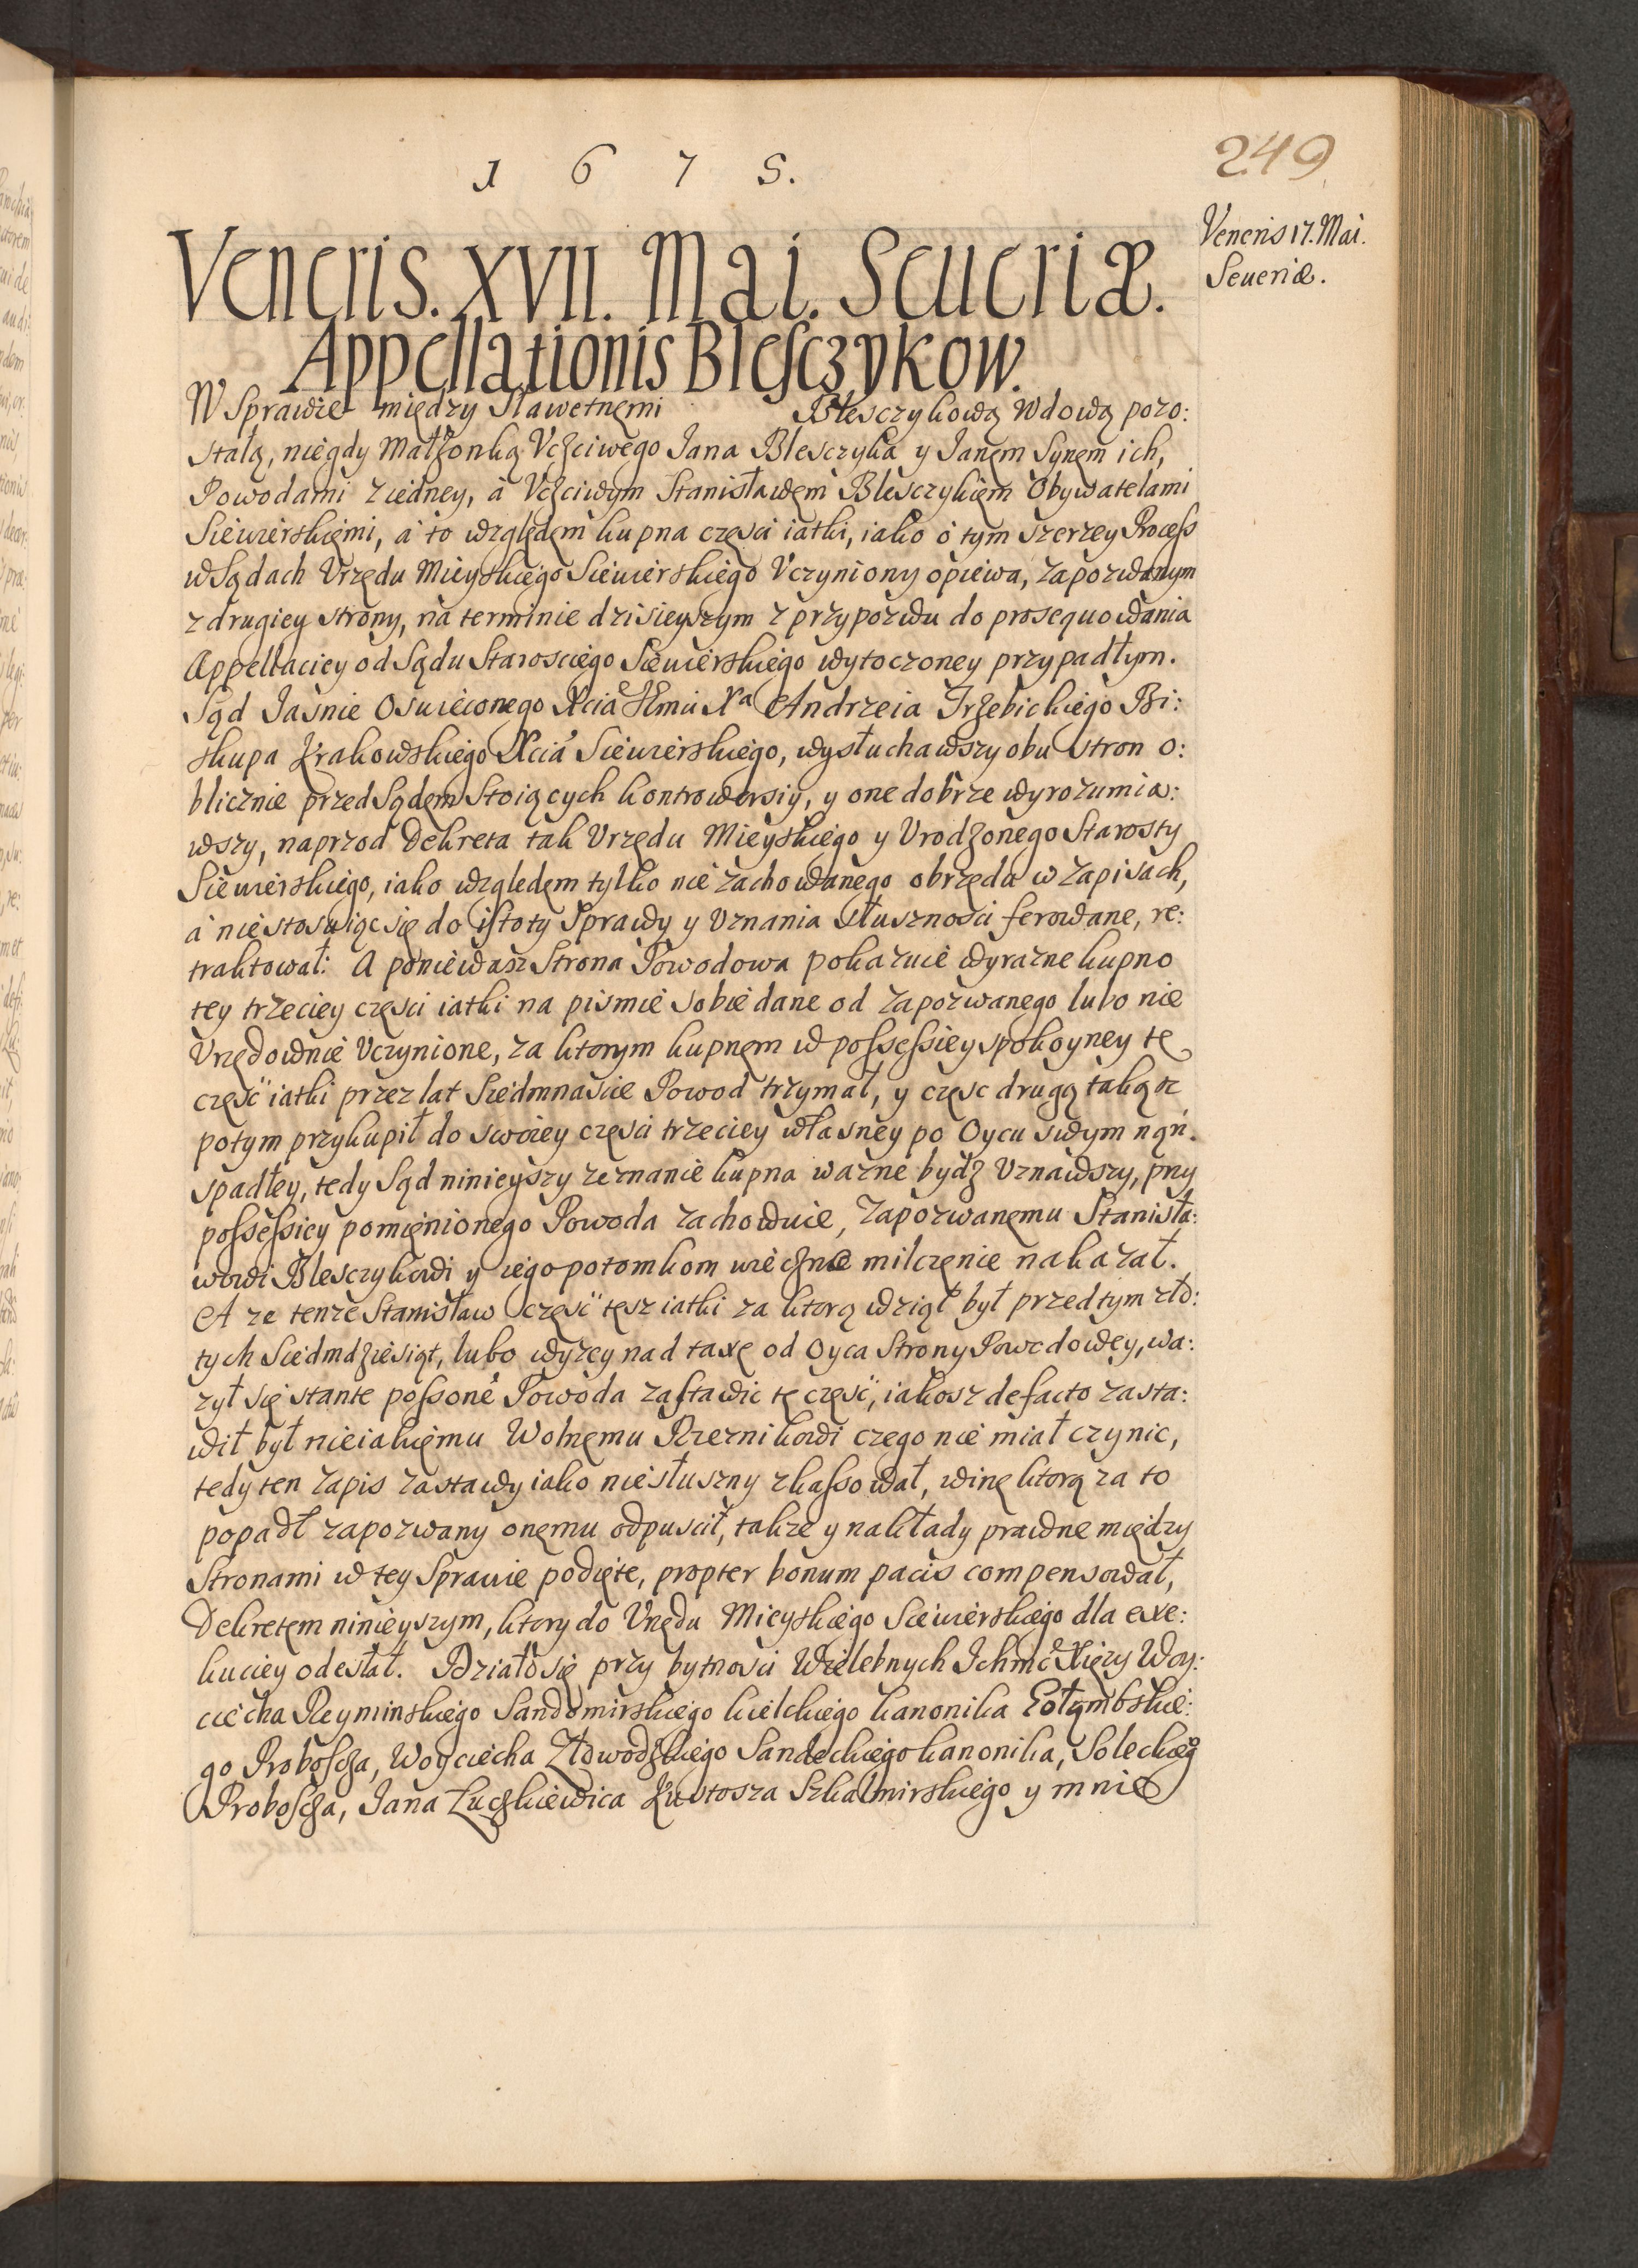 1 6 7 5.
249
Veneris. XVII. Mai. Seueriæ.
Veneris 17. Mai.
Seueriæ.
Appellationis Blesczykow.
W Sprawie między Sławetnęmi Blesczykową Wdową pozo:
stałą, niegdy Małżonką Vcżciwego Iana Blesczyka y Ianęm Synęm ich,
Powodami z iedney, á Vcżciwym Stanisławęm Blesczykięm Obywatelami
Siewierskięmi, á to względęm kupna częsci iatki, iako o tym szerzey Process
w Sądach Vrzędu Mieyskiego Siewierskiego Vczyniony opiewa, Zapozwanym
z drugiey strony, na terminie dzisieyszym z przypozwu do prosequowania
Appellaciey od Sądu Starosciego Siewierskiego wytoczoney przypadłym.
Sąd Iasnie Oswieconego Xcia Jłmci Xa Andrzeia Trżebickiego Bi:
skupa Krakowskiego Xcia Siewierskiego, wysłuchawszy obu stron o:
blicznie przed Sądęm Stoiących kontrowersiy, y one dobrze wyrozumia:
wszy, naprzod Dekreta tak Vrzędu Mieyskiego y Vrodżonego Starosty
Siewierskiego, iako względęm tylko nie zachowanego obrzędu w Zapisach,
á nie stosuiąc się do istoty Sprawy y Vznania słusznosci ferowane, re:
traktował: A poniewasz Strona Powodowa pokazuie wyrazne kupno
tey trzeciey częsci iatki na pismie sobie dane od Zapozwanego lubo nie
Vrzędownie Vczynione, za ktorym kupnęm w possessiey spokoyney tę
częsć iatki przez lat Siedmnascie Powod trzymał, y częsc drugą takąsz
potym przykupił do swoiey częsci trzeciey własney po Oycu swym nąń.
spadłey, tedy Sąd ninieyszy zeznanie kupna wazne bydż Vznawszy, przy
possessiey pomięnionego Powoda zachowuie, Zapozwanemu Stanisła:
wowi Blesczykowi y iego potomkom wiecżne milczęnie nakazał.
A ze tenze Stanisław częsć tęsz iatki za ktorą wziął był przedtym zło:
tych Siedmdżiesiąt, lubo wyzey nad taxę od Oyca Strony Powodowey, wa:
zył się stante possone Powoda zastawic tę częsć, iakosz de facto zasta:
wił był nieiakięmu Wolnęmu Rzeznikowi czego nie miał czynic,
tedy ten Zapis zastawy iako niesłuszny zkassował, winę ktorą za to
popadł zapozwany onemu odpuscił, takze y nakłady prawne między
Stronami w tey Sprawie podięte, propter bonum pacis compensował,
Dekretęm ninieyszym, ktory do Vrzędu Mieyskiego Siewierskiego dla exe:
kuciey odesłał. Działo się przy bytnosci Wielebnych Ichmć Xięzy Woy:
ciecha Reyminskiego Sandomirskiego kielckiego kanonika Gołąmbskie:
go Proboscża, Woyciecha Zławodżkiego Sandeckiego kanonika, Soleckieg
Proboscża, Iana Łucżkiewica Kustosza Szkalmirskiego y mnie